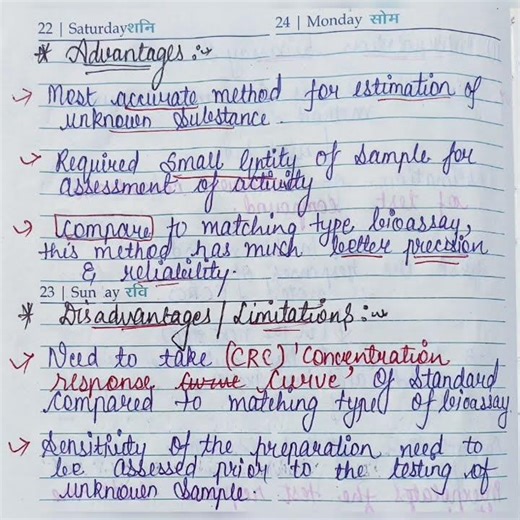 22 | Saturdayशनि
24 | Monday सोम
* Advantages :-
→ Most accurate method for estimation of
unknown Substance.
→ Required Small Entity of Sample for
assessment of activity
→ Compare to matching type bioassay,
this method has much better precision
& reliability.
23 | Sun ay रवि
* Disadvantages / Limitations :-
→ Need to take (CRC) 'Concentration
response curve Curve' of Standard
compared to matching type of bioassay
→ Sensitivity of the preparation need to
be assessed prior to the testing of
unknown Sample.